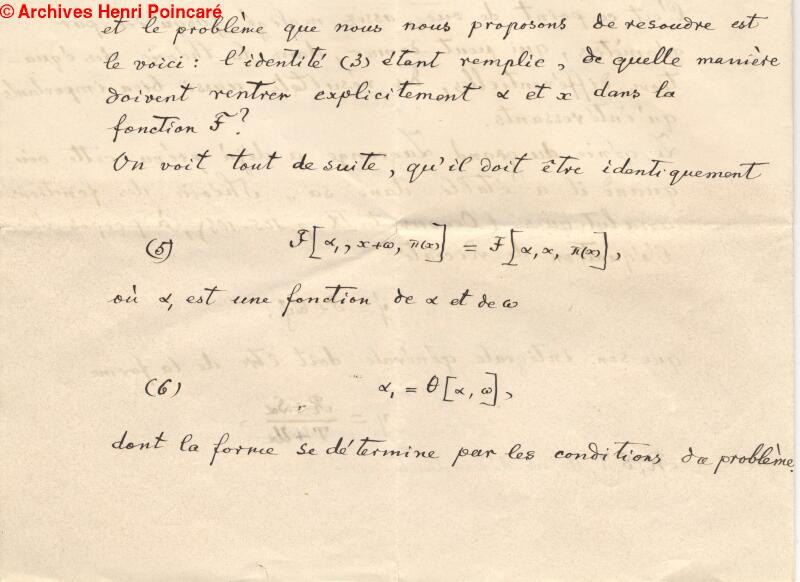 © Archives Henri Poincaré
et le problème que nous nous proposons de resoudre est
le voici : l'identité (3) étant remplie, de quelle manière
doivent rentrer explicitement α et x dans la
fonction F?
On voit tout de suite, qu'il doit être identiquement
(5) F[α₁, x+ω, π(x)] = F[α, x, π(x)],
où α₁ est une fonction de α et de ω
(6) α₁ = θ[α, ω],
dont la forme se détermine par les conditions du problème.